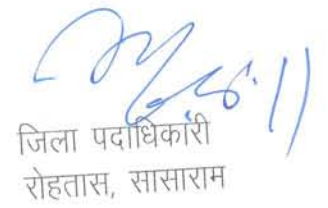 जिला पदाधिकारी
रोहतास, सासाराम